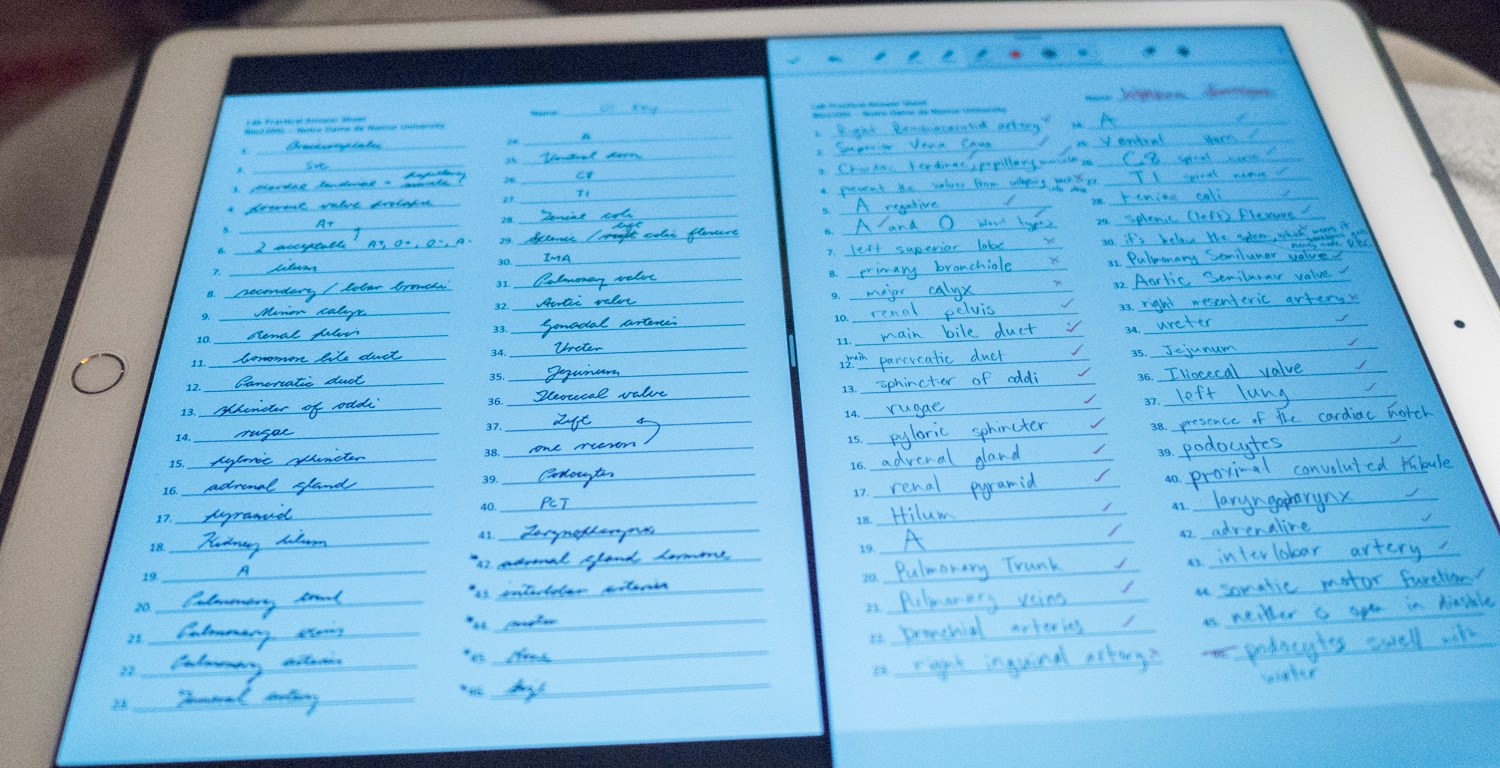 Lab Practical Answer Sheet
Notre Dame de Namur University
Name: Key
1. Brachiocephalic
2. SVC
3. chordae tendineae + papillary muscle
4. prevent valve prolapse
5. A+
6. 2 acceptable A+, O+, O-, A-
7. ilium
8. secondary / lobar bronchi
9. Minor calyx
10. Renal pelvis
11. common bile duct
12. Pancreatic duct
13. sphincter of oddi
14. rugae
15. pyloric sphincter
16. adrenal gland
17. pyramid
18. Kidney hilum
19. A
20. Pulmonary trunk
21. Pulmonary veins
22. Pulmonary arteries
23. Femoral artery
24. A
25. Ventral horn
26. C8
27. T1
28. Teniae coli
29. Splenic / left colic flexure
30. IMA
31. Pulmonary valve
32. Aortic valve
33. Gonadal arteries
34. Ureter
35. Jejunum
36. Ileocecal valve
37. Left
38. one reason
39. Podocytes
40. PCT
41. Laryngopharynx
*42. adrenal gland hormone
*43. interlobar arteries
*44. motor
*45.
*46.
Lab Practical Answer Sheet
Notre Dame de Namur University
Name:
1. Right Brachiocephalic artery
2. Superior Vena Cava
3. Chordae Tendinae, papillary muscle
4. prevent the valves from collapsing back into
5. A negative
6. A and O blood types
7. left superior lobe
8. primary bronchiole
9. major calyx
10. renal pelvis
11. main bile duct
12. main pancreatic duct
13. sphincter of oddi
14. rugae
15. pyloric sphincter
16. adrenal gland
17. renal pyramid
18. Hilum
19. A
20. Pulmonary Trunk
21. Pulmonary veins
22. bronchial arteries
23. right inguinal artery
24. A
25. Ventral Horn
26. C8 spinal nerve
27. T1 spinal nerve
28. teniae coli
29. splenic (left) flexure
30. it's below the spleen, which means it
31. Pulmonary Semilunar valve
32. Aortic Semilunar valve
33. right mesenteric artery
34. ureter
35. Jejunum
36. Iliocecal valve
37. left lung
38. presence of the cardiac notch
39. podocytes
40. proximal convoluted tubule
41. laryngopharynx
42. adrenaline
43. interlobar artery
44. somatic motor function
45. neither is open in diastole
podocytes swell with
water